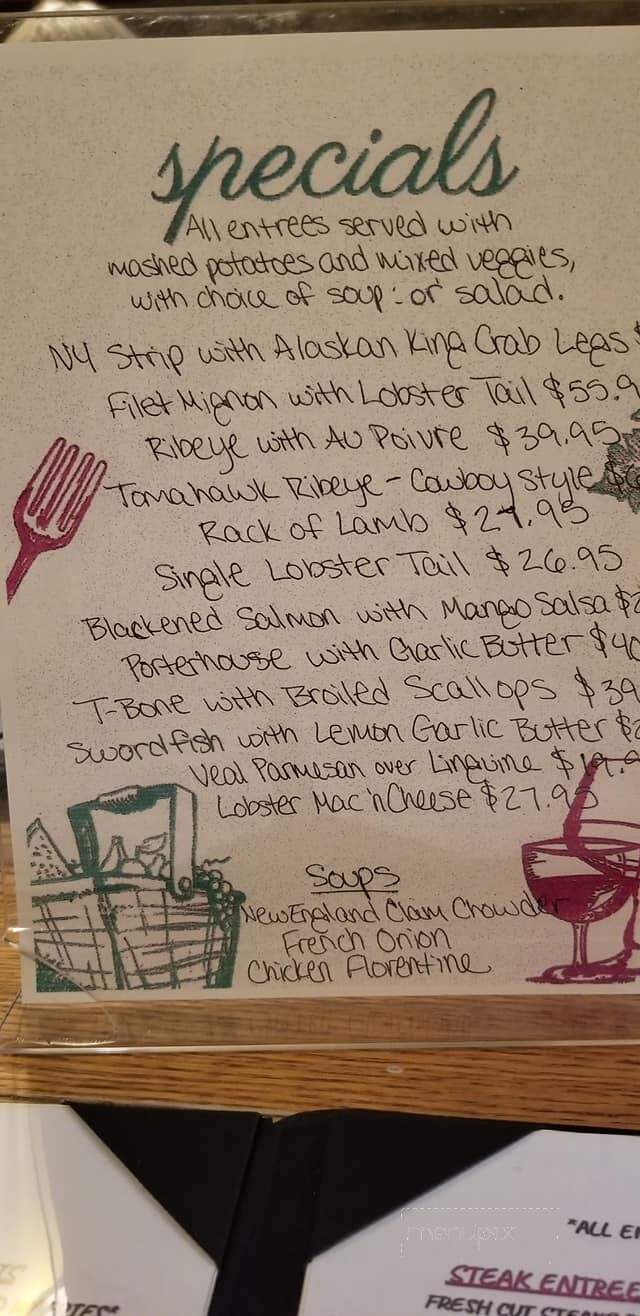 specials
All entrees served with
mashed potatoes and mixed veggies,
with choice of soup or salad.
NY Strip with Alaskan King Crab Legs $
Filet Mignon with Lobster Tail $55.9
Ribeye with Au Poivre $39.95
Tomahawk Ribeye - Cowboy Style $
Rack of Lamb $27.95
Single Lobster Tail $26.95
Blackened Salmon with Mango Salsa $2
Porterhouse with Garlic Butter $40
T-Bone with Broiled Scallops $39
Swordfish with Lemon Garlic Butter $2
Veal Parmesan over Linguine $19.9
Lobster Mac 'n Cheese $27.95
Soups
New England Clam Chowder
French Onion
Chicken Florentine
menupix
"ALL E
STEAK ENTREE
FRESH CUT STEA